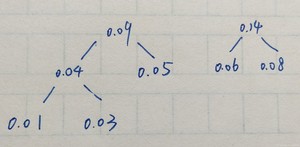 0.09 0.14
0.04 0.05 0.06 0.08
0.01 0.03